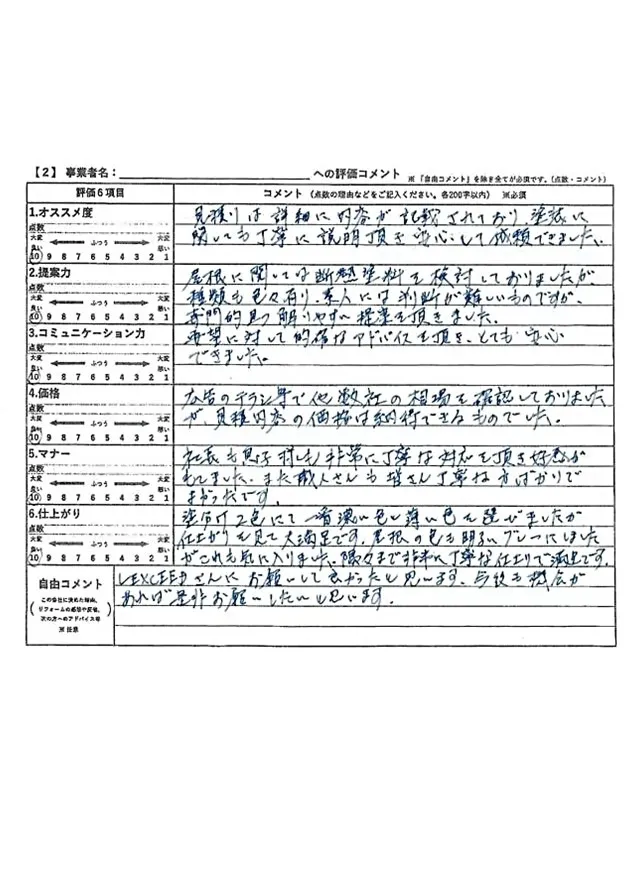 【2】 事業者名： への評価コメント ※「自由コメント」を除き全てが必須です。（点数・コメント）
評価6項目 コメント （点数の理由などをご記入ください。各200字以内） ※必須
1.オススメ度
点数
大変良い ふつう 大変悪い
10 9 8 7 6 5 4 3 2 1
見積りは詳細に内容が記載されており、塗装に
関しても丁寧に説明頂き安心して依頼できました。
2.提案力
点数
大変良い ふつう 大変悪い
10 9 8 7 6 5 4 3 2 1
屋根に関しては断熱塗料を検討しておりましたが、
種類も色々有り、素人には判断が難しいものですが、
専門的且つ解りやすい提案を頂きました。
3.コミュニケーション力
点数
大変良い ふつう 大変悪い
10 9 8 7 6 5 4 3 2 1
要望に対して的確なアドバイスを頂き、とても安心
できました。
4.価格
点数
大変良い ふつう 大変悪い
10 9 8 7 6 5 4 3 2 1
広告のチラシ等で他数社の相場を確認しておりました
が、見積内容の価格は納得できるものでした。
5.マナー
点数
大変良い ふつう 大変悪い
10 9 8 7 6 5 4 3 2 1
社長も息子様も非常に丁寧な対応を頂き好感が
もてました。また職人さんも皆さん丁寧な方ばかりで
6.仕上がり
点数
大変良い ふつう 大変悪い
10 9 8 7 6 5 4 3 2 1
塗分け2色にて一番濃い色と薄い色を選びましたが
仕上がりを見て大満足です。屋根の色も明るいグレーにしました
がこれも気に入りました。隅々まで非常に丁寧な仕上りで満足です。
自由コメント
（この会社に決めた理由、
リフォームの感想や反省、
次の方へのアドバイス等）
※任意
LEXCEEDさんにお願いして良かったと思います。今後も機会が
あれば是非お願いしたいと思います。